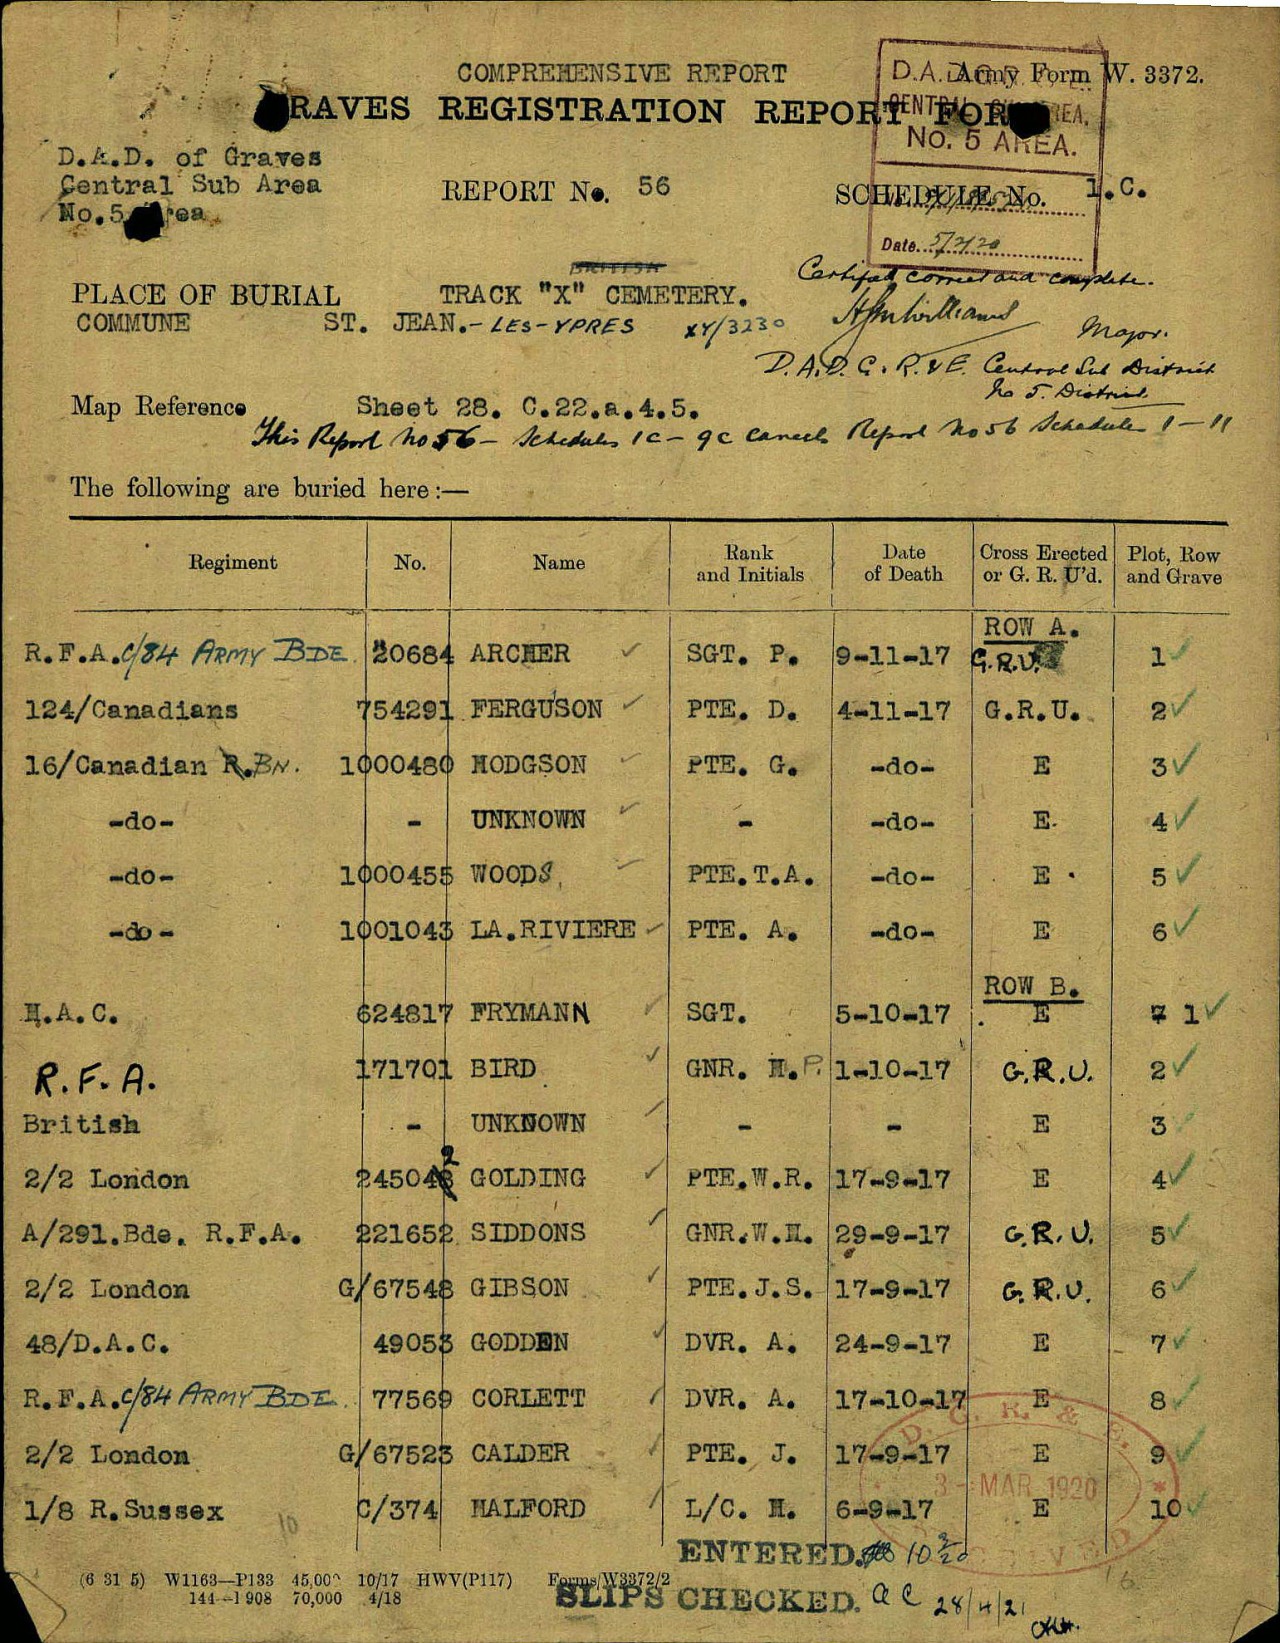 COMPREHENSIVE REPORT
Army Form W. 3372.
D.A.D.G.R. & E.
CENTRAL SUB AREA.
No. 5 AREA.
GRAVES REGISTRATION REPORT FORM
D.A.D. of Graves
Central Sub Area
No.5 Area.
REPORT No. 56
SCHEDULE No. 1.C.
Date 5/2/20
BRITISH
Certified correct and complete.
PLACE OF BURIAL TRACK "X" CEMETERY.
Major.
COMMUNE ST. JEAN.-LES-YPRES XY/3230
D.A.D.G.R.&E. Central Sub District
No 5. District
Map Reference Sheet 28. C.22.a.4.5.
This Report No 56 - Schedules 1c - 9c cancels Report No 56 Schedules 1 - 11
The following are buried here:—
Regiment No. Name Rank and Initials Date of Death Cross Erected or G. R. U'd. Plot, Row and Grave
ROW A.
R.F.A. C/84 ARMY BDE 20684 ARCHER SGT. P. 9-11-17 G.R.U. 1
124/Canadians 754291 FERGUSON PTE. D. 4-11-17 G.R.U. 2
16/Canadian R. BN. 1000480 HODGSON PTE. G. -do- E 3
-do- - UNKNOWN - -do- E 4
-do- 1000455 WOODS PTE.T.A. -do- E 5
-do- 1001043 LA.RIVIERE PTE. A. -do- E 6
ROW B.
H.A.C. 624817 FRYMANN SGT. 5-10-17 E 7 1
R.F.A. 171701 BIRD GNR. H.P. 1-10-17 G.R.U. 2
British - UNKNOWN - - E 3
2/2 London 245048 2 GOLDING PTE.W.R. 17-9-17 E 4
A/291.Bde. R.F.A. 221652 SIDDONS GNR.W.H. 29-9-17 G.R.U. 5
2/2 London G/67548 GIBSON PTE.J.S. 17-9-17 G.R.U. 6
48/D.A.C. 49053 GODDEN DVR. A. 24-9-17 E 7
R.F.A. C/84 ARMY BDE 77569 CORLETT DVR. A. 17-10-17 E 8
2/2 London G/67523 CALDER PTE. J. 17-9-17 E 9
1/8 R.Sussex C/374 HALFORD L/C. H. 6-9-17 E 10
D. G. R. & E.
3 - MAR 1920
10
ENTERED. 10 3/20
16
(6 31 5) W1163—P133 45,000 10/17 HWV(P117) Forms/W3372/2
144—1908 70,000 4/18
SLIPS CHECKED. a c 28/4/21